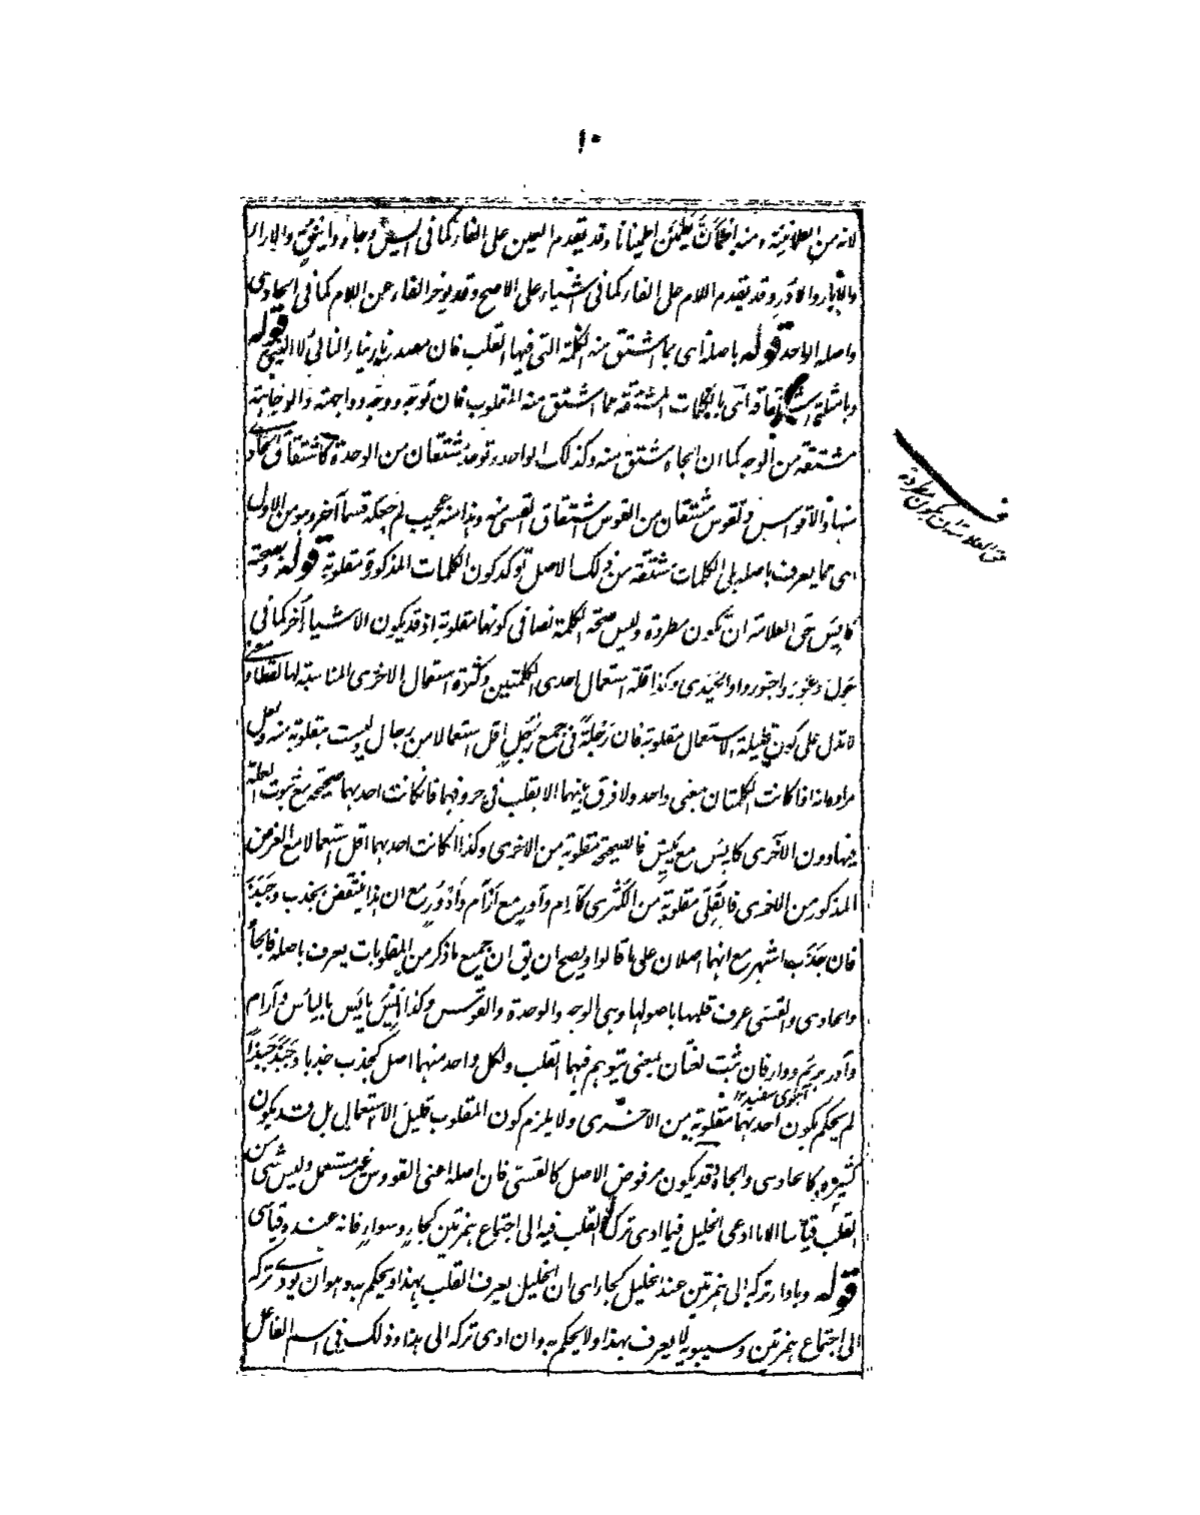 ١٠
لانه من الطمانينة ومنه اطمأن يطمئن اطمينانا وقد يقدم العين على الفاء كما فى أيس وجاه وأينق والآراء
والآبار والآدر وقد يقدم اللام على الفاء كما فى اشياء على الاصح وقد يؤخر الفاء عن اللام كما فى الحادى
واصله الواحد قوله باصله اى بما اشتق منه الكلمة التى فيها القلب فان مصدر ناء يناء النأى لا النيئ قوله
وبامثلة اشتقاقه اى بالكلمات المشتقة مما اشتق منه المقلوب فان توجه ووجه وواجهته والوجاهة
مشتقة من الوجه كما ان الجاه مشتق منه وكذلك الواحد وتوحد مشتقان من الوحدة كاشتقاق الحادى
منها والاقواس وتقوس مشتقان من القوس اشتقاق القسى منه وهذا منه عجيب لم جعله قسما آخر وهو من الاول
اى مما يعرف باصله بلى الكلمات مشتقة من ذلك الاصل توكد كون الكلمات المذكورة مقلوبة قوله وبصحته
كأيس حق العلامة ان تكون مطردة وليس صحة الكلمة نصا فى كونها مقلوبة اذ قد يكون الاشياء أخر كما فى
حول وعور واجتوروا والحيدى وكذا قلة استعمال احدى الكلمتين وكثرة استعمال الاخرى المناسبة لها لفظا ومعنى
لا تدل على كون قليلة الاستعمال مقلوبة فان رجلة فى جمع رجل اقل استعمالا من رجال وليست بمقلوبة منه ولعل
مراده انه اذا كانت الكلمتان بمعنى واحد ولا فرق بينهما الا بقلب فى حروفهما فان كانت احديهما صحيحة مع ثبوت العلة
فيها دون الاخرى كأيس مع يئس فالصحيحة مقلوبة من الاخرى وكذا ان كانت احديهما اقل استعمالا مع الفرض
المذكور من الاخرى فالقلى مقلوبة من الكثرى كآرام وآدر مع أرآم وأدؤر مع ان هذا ينتقض بجذب وجبذ
فان جذب اشهر مع انهما اصلان على ما قالوا ويصح ان يق ان جميع ما ذكر من المقلوبات يعرف باصله فالجاه
والحادى والقسى عرف قلبها باصولها وهى الوجه والوحدة والقوس وكذا أيس يأيس باليأس وآرام
وآدر برئم ودار فان ثبت لغتان بمعنى يتوهم فيهما القلب ولكل واحد منهما اصل كجذب جذبا وجبذ جبذا
آهوى سفيد ١٢
لم يحكم بكون احديهما مقلوبة من الاخرى ولا يلزم كون المقلوب قليل الاستعمال بل قد يكون
كثيره كالحادى والجاه وقد يكون مرفوض الاصل كالقسى فان اصله اعنى القووس غير مستعمل وليس شئ من
القلب قياسا الا ما ادعى الخليل فيما ادى ترك القلب فيه الى اجتماع همزتين كجاء وسواء فانه عنده قياسى
قوله وباداء تركه الى همزتين عند الخليل كجاء اى ان الخليل يعرف القلب بهذا ويحكم به وهو ان يؤدى تركه
الى اجتماع همزتين وسيبويه لا يعرف بهذا ولا يحكم به وان ادى تركه الى هذا وذلك فى اسم الفاعل
حق العلامة ان يكون مطردة